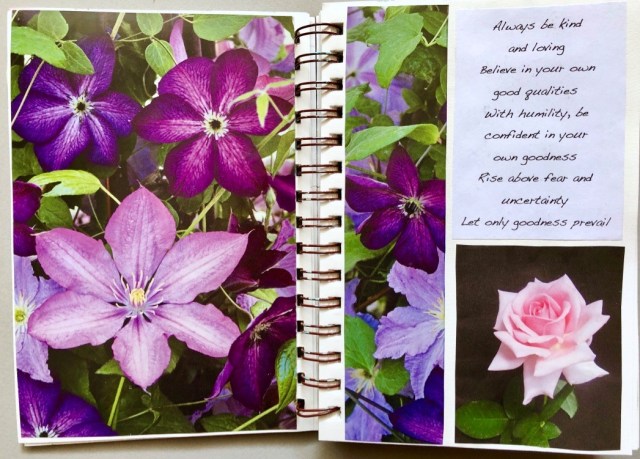 Always be kind
and loving
Believe in your own
good qualities
With humility, be
confident in your
own goodness
Rise above fear and
uncertainty
Let only goodness prevail